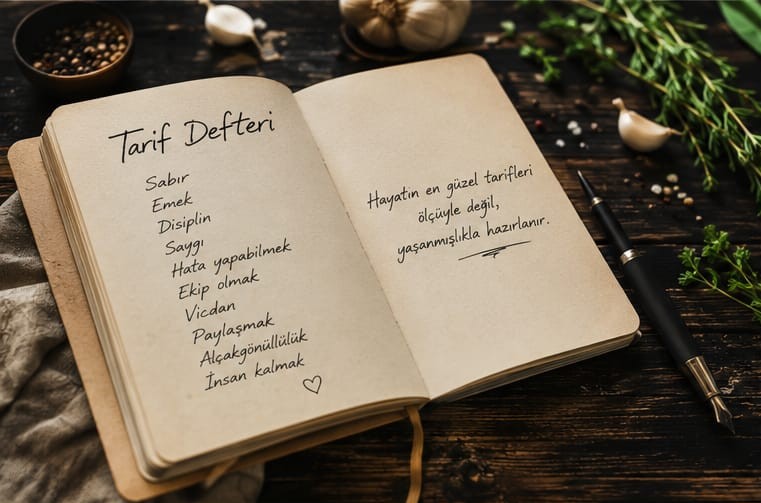 Tarif Defteri
Sabır
Emek
Disiplin
Saygı
Hata yapabilmek
Ekip olmak
Vicdan
Paylaşmak
Alçakgönüllülük
İnsan kalmak
Hayatın en güzel tarifleri
ölçüyle değil,
yaşanmışlıkla hazırlanır.